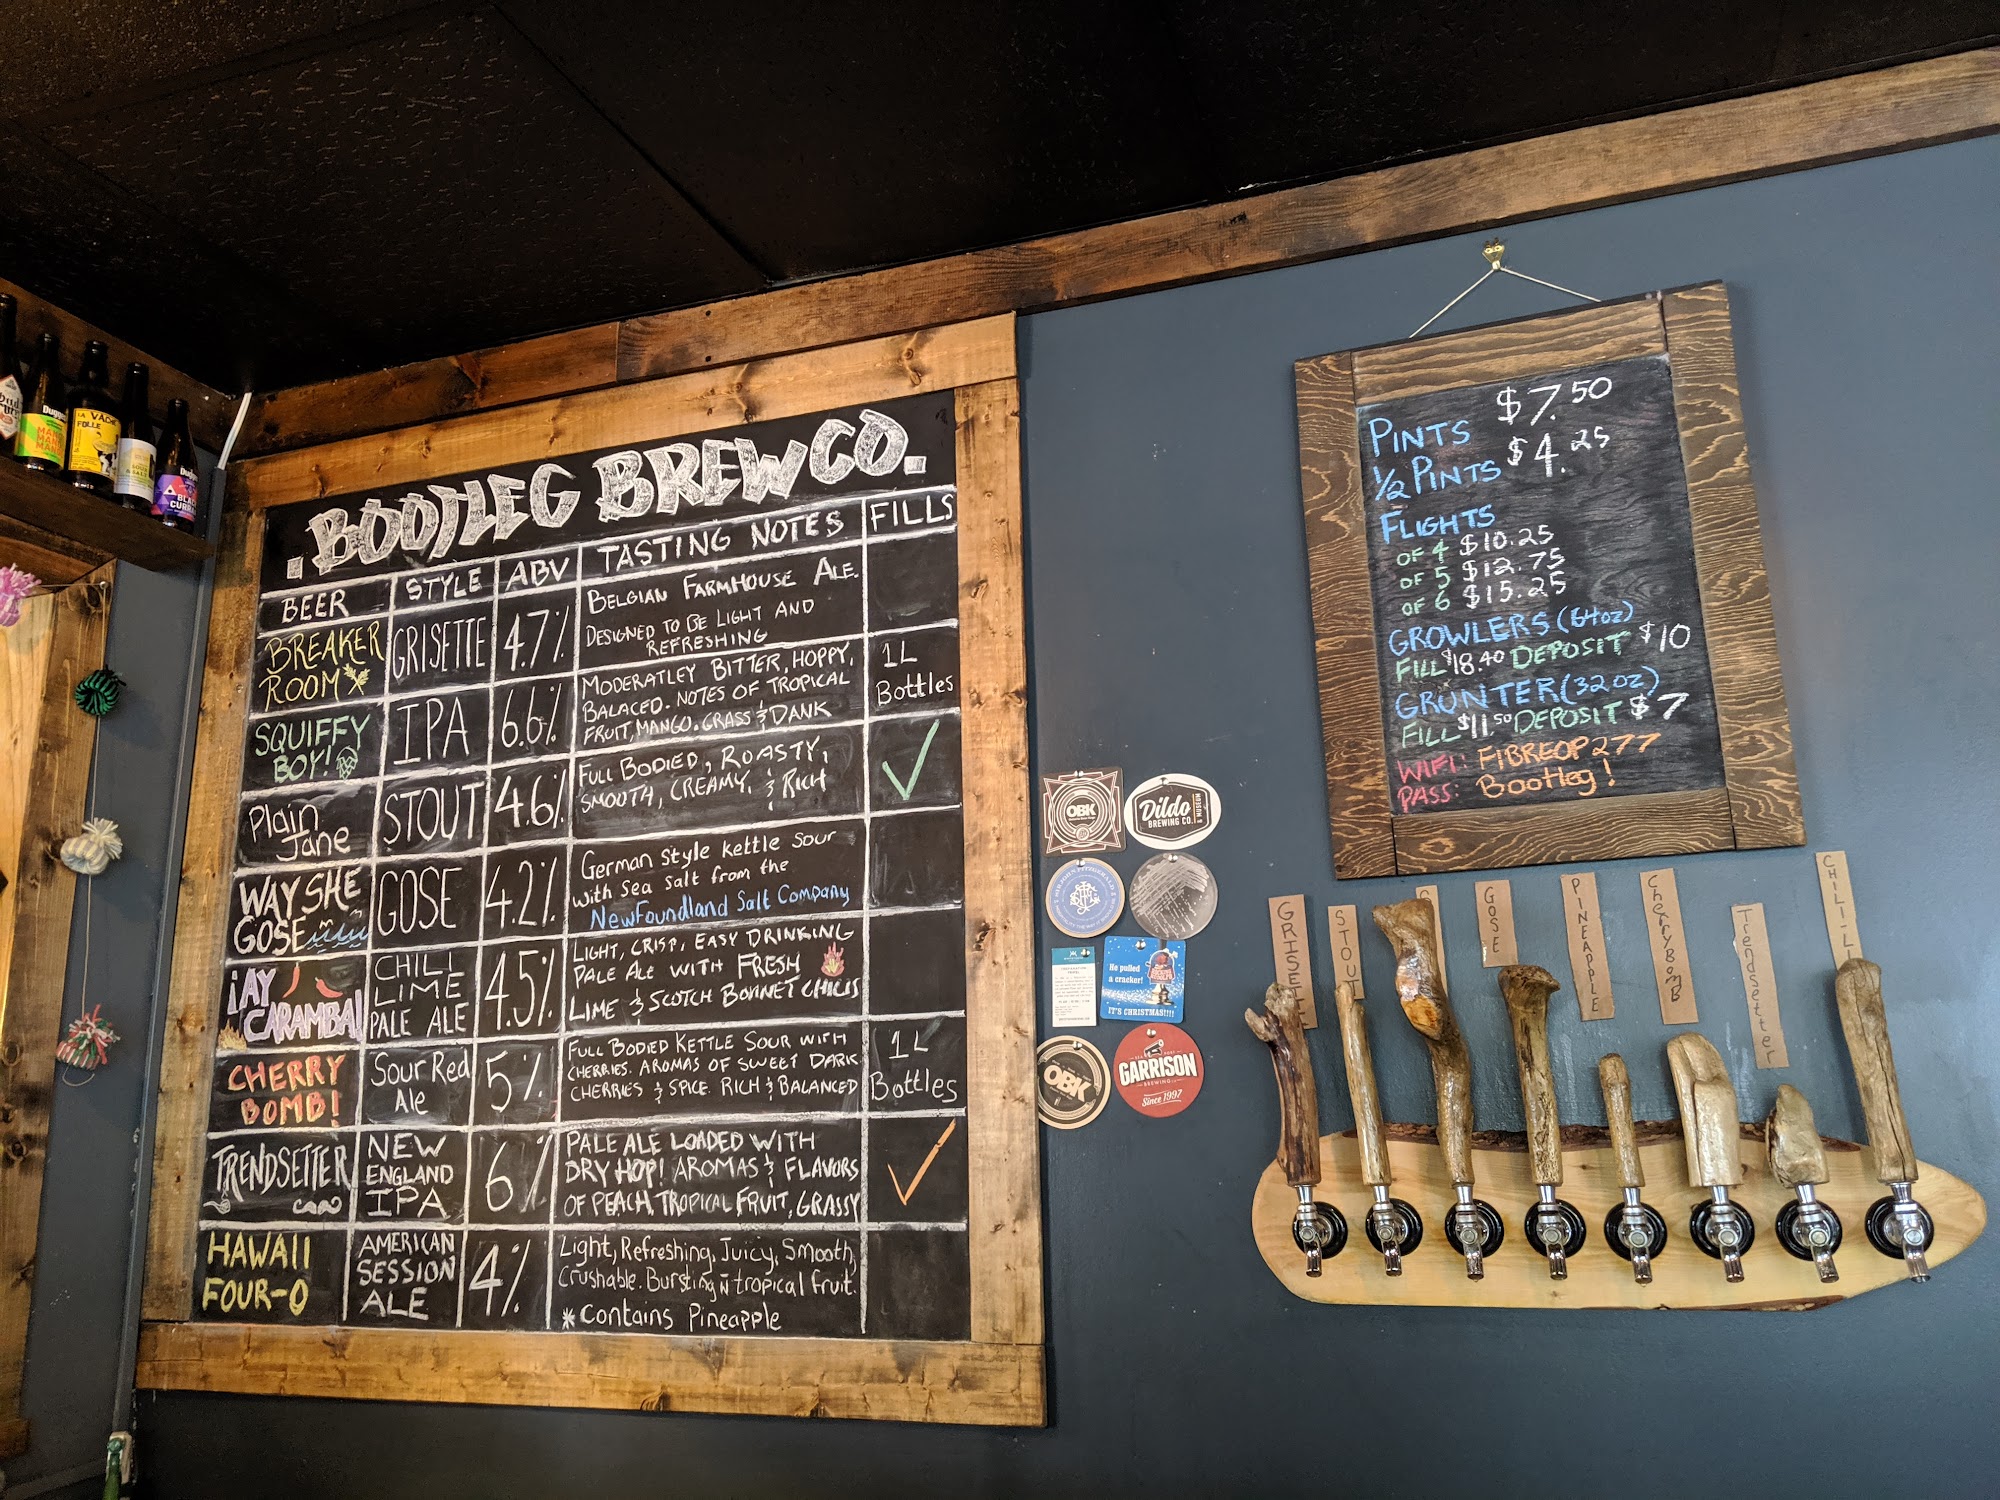 .BOOTLEG BREW CO.
BEER
STYLE
ABV
TASTING NOTES
FILLS
BREAKER
ROOM
GRISETTE
4.7%
BELGIAN FARMHOUSE ALE.
DESIGNED TO BE LIGHT AND
REFRESHING
SQUIFFY
BOY!
IPA
6.6%
MODERATLEY BITTER, HOPPY,
BALACED. NOTES OF TROPICAL
FRUIT, MANGO. GRASS & DANK
1L
Bottles
Plain
Jane
STOUT
4.6%
FULL BODIED, ROASTY,
SMOOTH, CREAMY, & RICH
WAY SHE
GOSE
GOSE
4.2%
German style kettle sour
with sea salt from the
Newfoundland Salt Company
¡AY
CARAMBA!
CHILI
LIME
PALE ALE
4.5%
LIGHT, CRISP, EASY DRINKING
PALE ALE WITH FRESH
LIME & SCOTCH BONNET CHILIS
CHERRY
BOMB!
Sour Red
Ale
5%
FULL BODIED KETTLE SOUR WITH
CHERRIES. AROMAS OF SWEET DARK
CHERRIES & SPICE. RICH & BALANCED
1L
Bottles
TRENDSETTER
NEW
ENGLAND
IPA
6%
PALE ALE LOADED WITH
DRY HOP! AROMAS & FLAVORS
OF PEACH, TROPICAL FRUIT, GRASSY
HAWAII
FOUR-O
AMERICAN
SESSION
ALE
4%
Light, Refreshing, Juicy, Smooth,
Crushable. Bursting w tropical fruit.
*Contains Pineapple
PINTS $7.50
1/2 PINTS $4.25
FLIGHTS
OF 4 $10.25
OF 5 $12.75
OF 6 $15.25
GROWLERS (64oz)
FILL $18.40 DEPOSIT $10
GRUNTER (32oz)
FILL $11.50 DEPOSIT $7
WIFI: FIBREOP277
PASS: Bootleg!
OBK
Dildo
BREWING CO.
& MUSEUM
He pulled
a cracker!
IT'S CHRISTMAS!!!!
OBK
GARRISON
BREWING
Since 1997
GRISETTE
STOUT
GOSE
PINEAPPLE
CherryBomB
Trendsetter
CHILI-L
LA VACHE
FOLLE